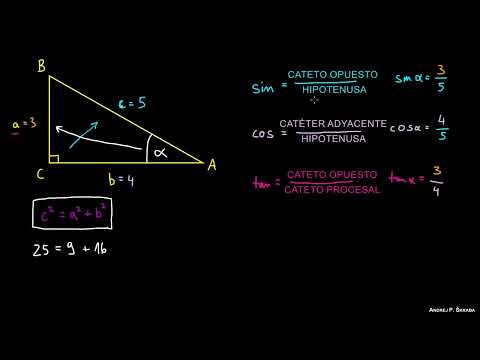 B
c = 5
a = 3
α
C
A
b = 4
c² = a² + b²
25 = 9 + 16
sin = CATETO OPUESTO / HIPOTENUSA
sin α = 3 / 5
cos = CATÉTER ADYACENTE / HIPOTENUSA
cos α = 4 / 5
tan = CATETO OPUESTO / CATETO PROCESAL
tan α = 3 / 4
ANDREJ P. ŠKRABA